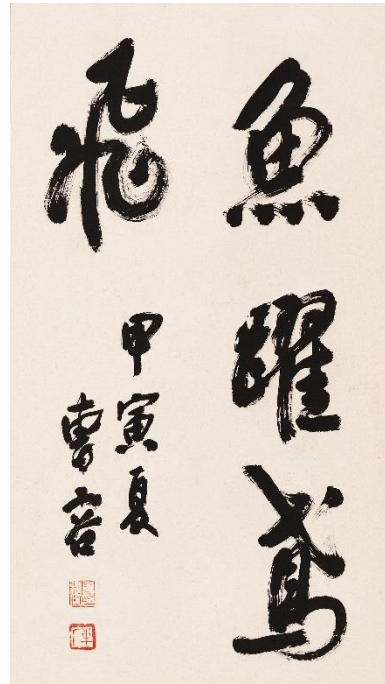 魚躍鳶
飛
甲寅夏
曹容